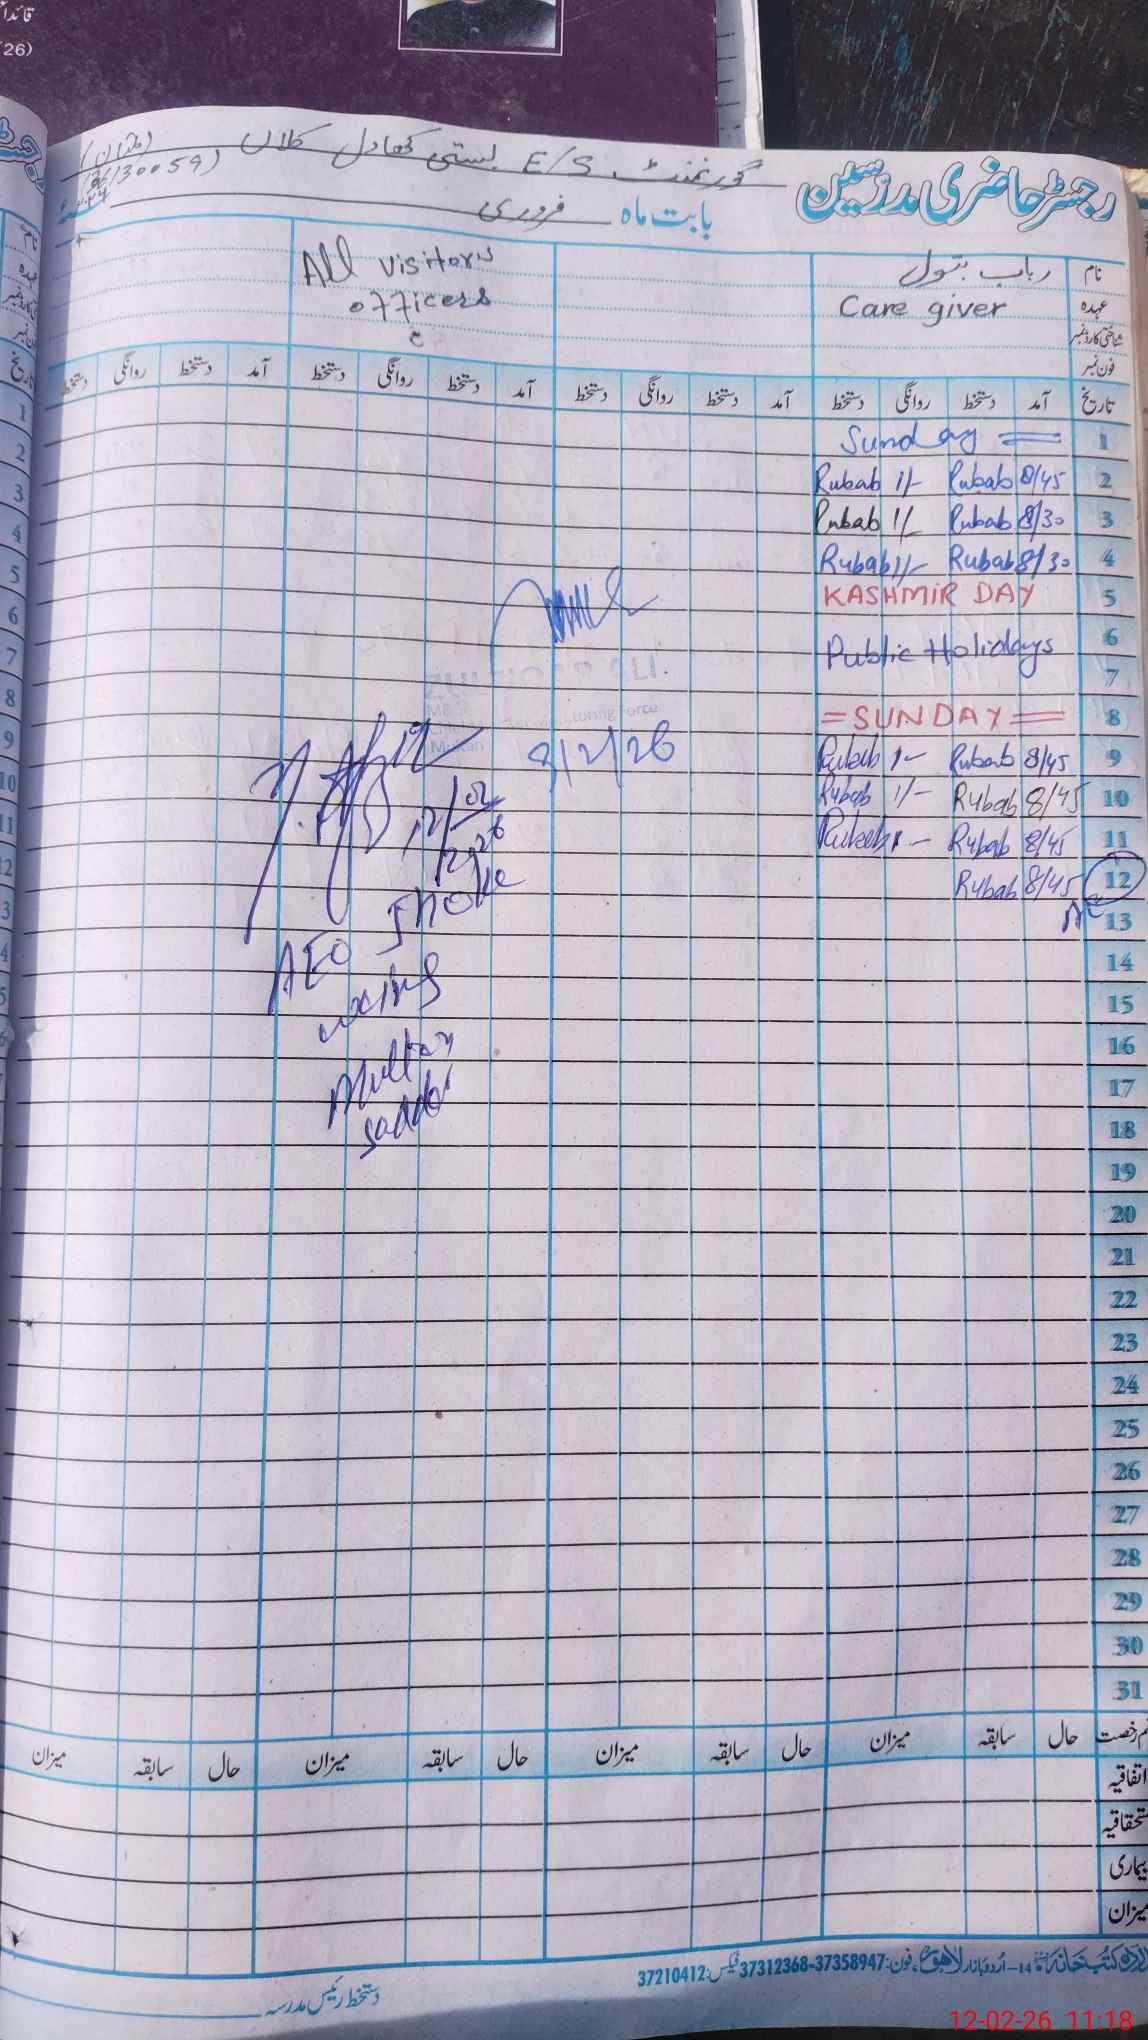 (26)
رجسٹر حاضری مدرسین
گورنمنٹ E/S بستی کھادل کلاں (ملتان)
بابت ماہ فروری
نام رباب بتول
عہدہ Care giver
شناختی کارڈ نمبر
فون نمبر
All visitors
officers
تاریخ آمد دستخط روانگی دستخط آمد دستخط روانگی دستخط آمد دستخط روانگی دستخط آمد دستخط روانگی دستخط
1 Sunday
2 8/45 Rubab 1/- Rubab
3 8/30 Rubab 1/- Rubab
4 8/30 Rubab 1/- Rubab
5 KASHMIR DAY
6 Public Holidays
7
8 =SUNDAY=
9 8/45 Rubab 1- Rubab
10 8/45 Rubab 1/- Rubab
11 8/45 Rubab 1- Rubab
12 8/45 Rubab
13
14
15
16
17
18
19
20
21
22
23
24
25
26
27
28
29
30
31
Monitoring Force
Multan
12/02
2026
AEO
Multan
saddar
حال سابقہ میزان حال سابقہ میزان حال سابقہ میزان حال سابقہ میزان
اتفاقیہ
استحقاقیہ
بیماری
میزان
14-اردو بازار لاہور، فون: 37358947-37312368 فیکس: 37210412
دستخط رئیس مدرسہ
12-02-26 11:18